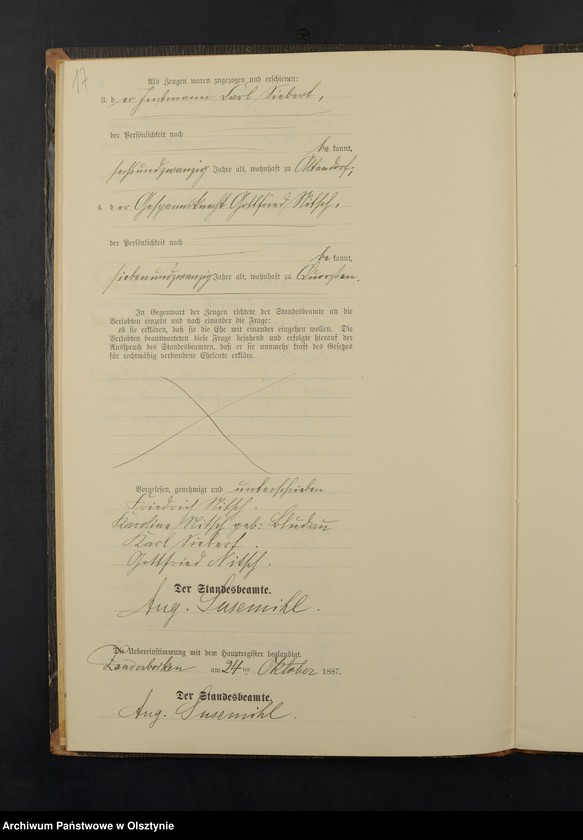 17
Als Zeugen waren zugezogen und erschienen:
3. der Instmann Carl Siebert,
der Persönlichkeit nach
be kannt,
sechsundzwanzig Jahre alt, wohnhaft zu Altendorf;
4. der Gespannsknecht Gottfried Nitsch,
der Persönlichkeit nach
be kannt,
siebenundzwanzig Jahre alt, wohnhaft zu
In Gegenwart der Zeugen richtete der Standesbeamte an die
Verlobten einzeln und nach einander die Frage:
ob sie erklären, daß sie die Ehe mit einander eingehen wollen. Die
Verlobten beantworteten diese Frage bejahend und erfolgte hierauf der
Ausspruch des Standesbeamten, daß er sie nunmehr kraft des Gesetzes
für rechtmäßig verbundene Eheleute erkläre.
Vorgelesen, genehmigt und unterschrieben
Friedrich Nitsch.
Karoline Nitsch geb: Bludau
Karl Siebert.
Gottfried Nitsch.
Der Standesbeamte.
Aug. Susemihl.
Die Uebereinstimmung mit dem Hauptregister beglaubigt.
am 24ten Oktober 1887.
Der Standesbeamte.
Aug. Susemihl.
Archiwum Państwowe w Olsztynie